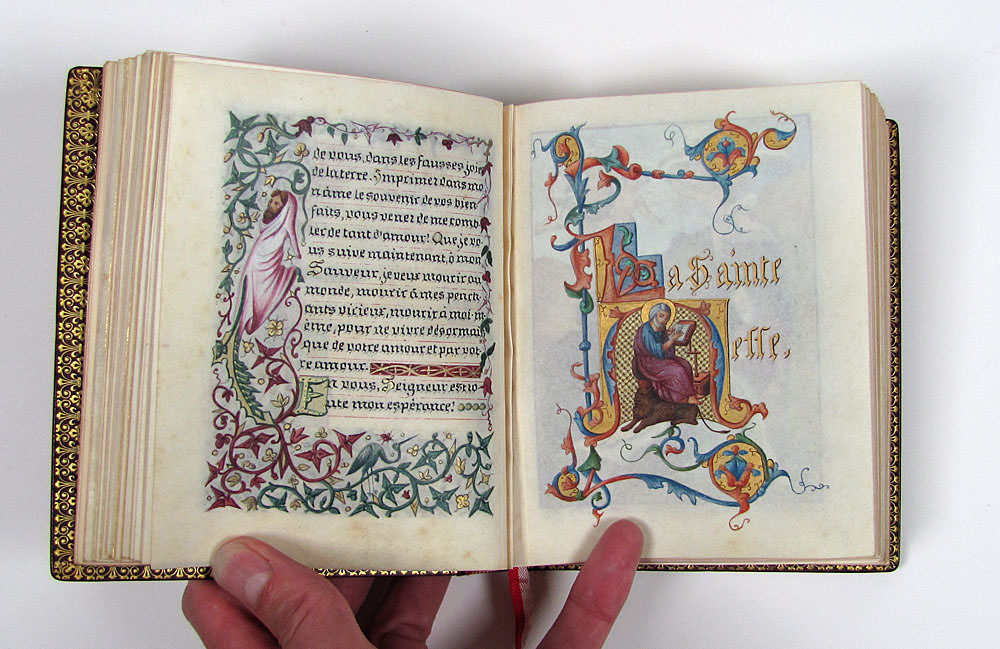 de vous, dans les fausses joie
de la terre. Imprimez dans mo
n âme le souvenir de vos bien
faits, vous venez de me comb
ler de tant d'amour! Que je vo
us suive maintenant, ô mon
Sauveur, je veux mourir au
monde, mourir à mes pench
ants vicieux, mourir à moi-m
ême, pour ne vivre désormais
que de votre amour et par vot
re amour.
En vous, Seigneur est to
ute mon espérance!
La Sainte
Messe.